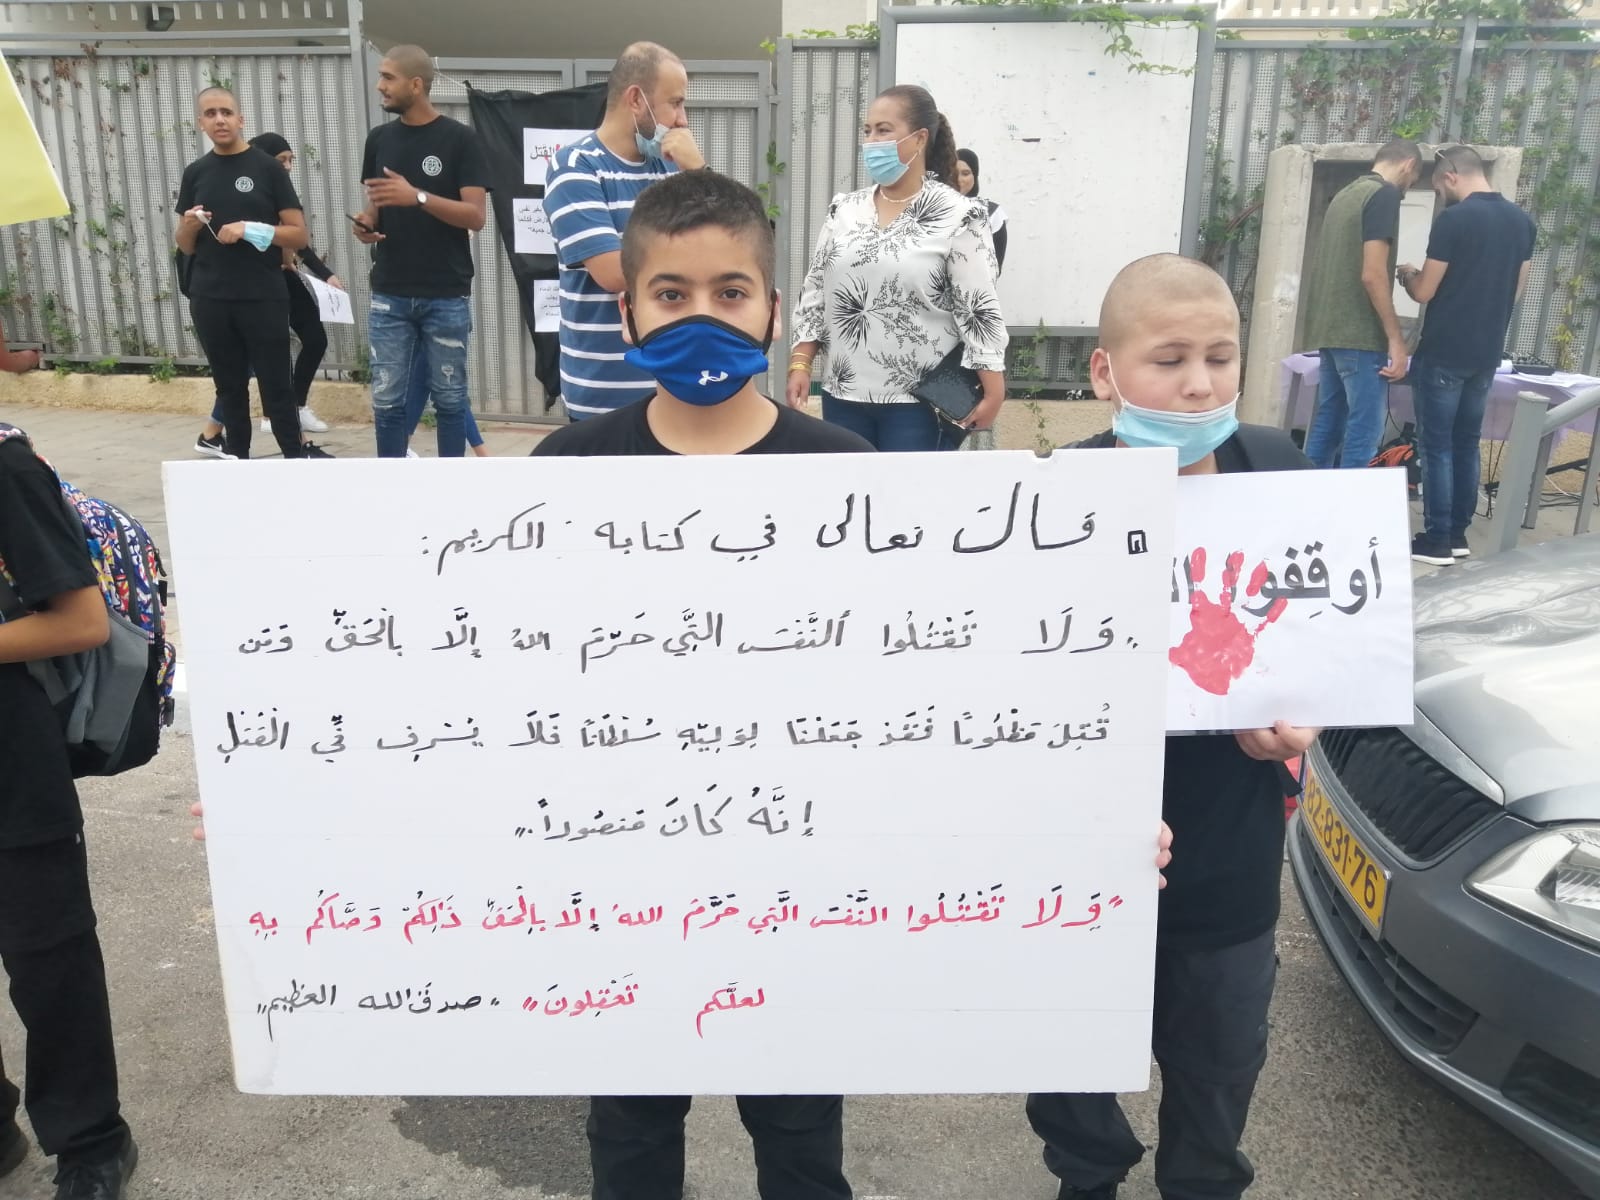 قال تعالى في كتابه الكريم:
"وَلَا تَقْتُلُوا ٱلنَّفْسَ الَّتِي حَرّمَ اللهُ إِلَّا بِالْحَقّ وَمَن
قُتِلَ مَظْلُومًا فَقَدْ جَعَلْنَا لِوَلِيّهِ سُلْطَاناً فَلَا يُسْرِف فِّي الْقَتْلِ
إِنَّهُ كَانَ مَنصُوراً."
"وَلَا تَقْتُلُوا النَّفْسَ الَّتِي حَرَّمَ اللهُ إِلَّا بِالْحَقّ ذَلِكُمْ وَصَّاكُم بِهِ
لعلَّكم تَعْقِلونَ" "صدق الله العظيم"
أوقِفوا
القتل
82-831-76